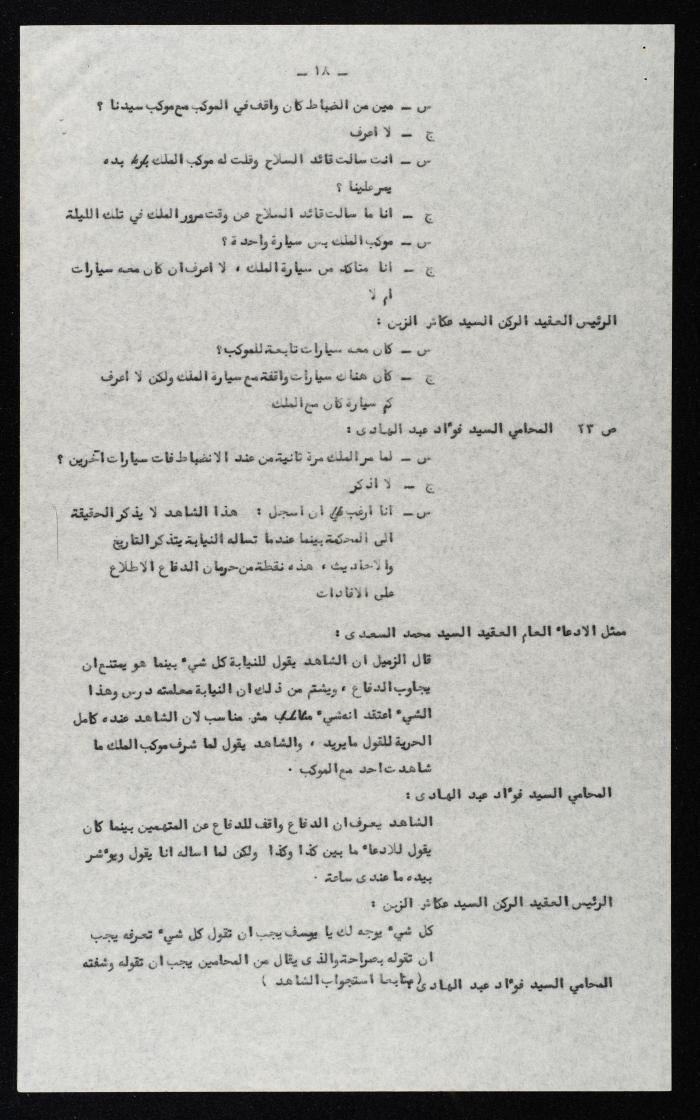 ـ ١٨ ـ
س ـ مين من الضباط كان واقف في الموكب مع موكب سيدنا ؟
ج ـ لا اعرف
س ـ انت سالت قائد السلاح وقلت له موكب الملك بده
يمر علينا ؟
ج ـ انا ما سالت قائد السلاح عن وقت مرور الملك في تلك الليلة
س ـ موكب الملك بس سيارة واحدة ؟
ج ـ انا متاكد من سيارة الملك ، لا اعرف ان كان معه سيارات
ام لا
الرئيس العقيد الركن السيد عكاش الزبن :
س ـ كان معه سيارات تابعة للموكب ؟
ج ـ كان هناك سيارات واقفة مع سيارة الملك ولكن لا اعرف
كم سيارة كان مع الملك
ص ٢٣ المحامي السيد فوءاد عبد الهادى :
س ـ لما مر الملك مرة ثانية من عند الانضباط فات سيارات آخرين ؟
ج ـ لا اذكر
س ـ انا ارغب ان اسجل : هذا الشاهد لا يذكر الحقيقة
الى المحكمة بينما عندما تساله النيابة يتذكر التاريخ
والاحاديث ، هذه نقطة من حرمان الدفاع الاطلاع
على الافادات
ممثل الادعاء العام العقيد السيد محمد السعدى :
قال الزميل ان الشاهد يقول للنيابة كل شيء بينما هو يمتنع ان
يجاوب الدفاع ، ويشتم من ذلك ان النيابة معلمته درس وهذا
الشيء اعتقد انه شيء مش مناسب لان الشاهد عنده كامل
الحرية للقول ما يريد ، والشاهد يقول لما شرف موكب الملك ما
شاهدت احد مع الموكب .
المحامي السيد فوءاد عبد الهادى :
الشاهد يعرف ان الدفاع واقف للدفاع عن المتهمين بينما كان
يقول للادعاء ما بين كذا وكذا ولكن لما اساله انا يقول ويوءشر
بيده ما عندى ساعة .
الرئيس العقيد الركن السيد عكاش الزبن :
كل شيء يوجه لك يا يوسف يجب ان تقول كل شيء تعرفه يجب
ان تقوله بصراحة والذى يقال من المحامين يجب ان تقوله وشفته
المحامي السيد فوءاد عبد الهادى (متابعا استجواب الشاهد )